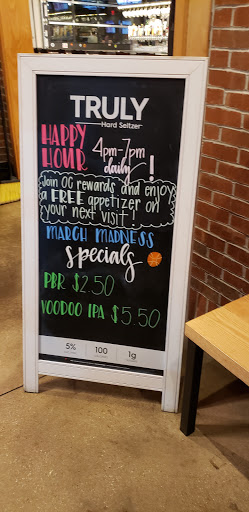 TRULY
Hard Seltzer
HAPPY
HOUR 4pm-7pm
daily!
Join OC rewards and enjoy
a FREE appetizer on
your next visit!
MARCH MADNESS
specials
PBR $2.50
VOODOO IPA $5.50
5% 100 1g